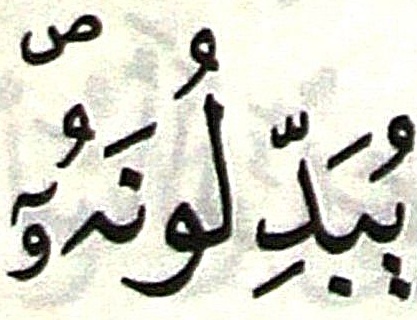 يُبَدِّلُونَهُۥٓ ص